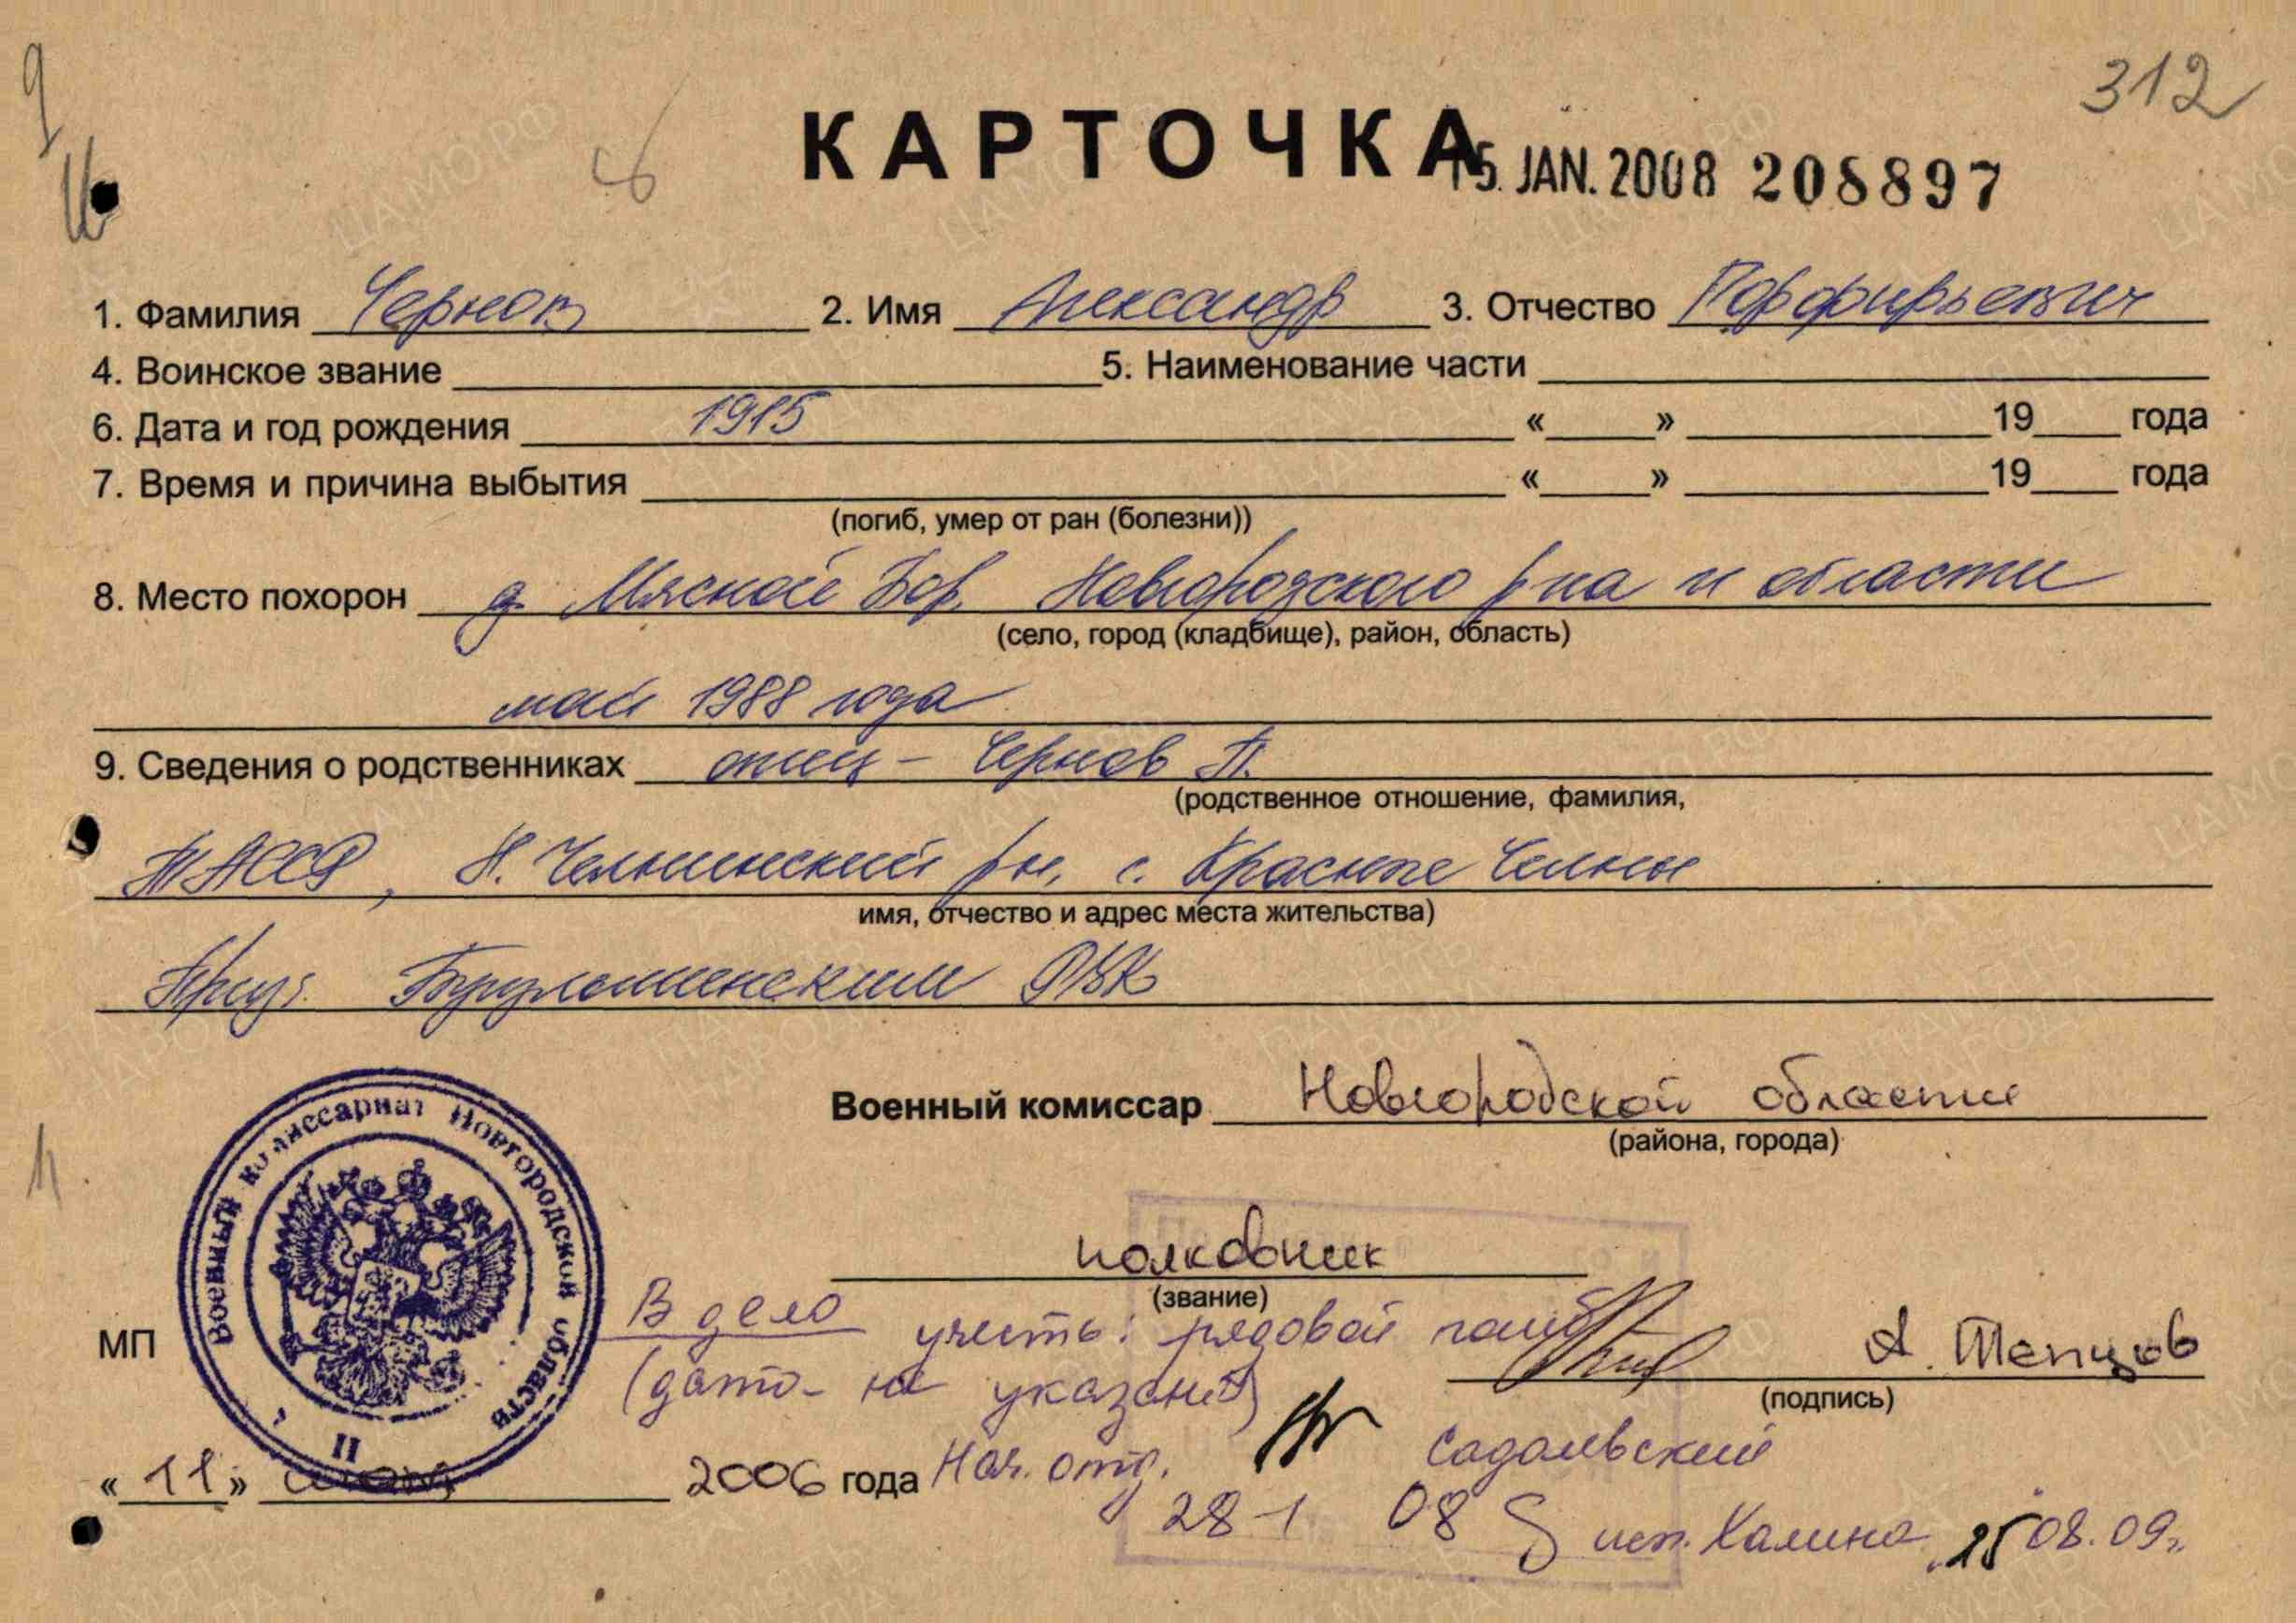 312
КАРТОЧКА
15. JAN. 2008 208897
1. Фамилия Чернов 2. Имя Александр 3. Отчество Порфирьевич
4. Воинское звание 5. Наименование части
6. Дата и год рождения 1915 « » 19 года
7. Время и причина выбытия « » 19 года
(погиб, умер от ран (болезни))
8. Место похорон д. Мясной Бор Новгородского р-на и области
(село, город (кладбище), район, область)
май 1988 года
9. Сведения о родственниках отец - Чернов П.
(родственное отношение, фамилия,
ТАССР, Н. Челнинский р-н, с. Красные Челны
имя, отчество и адрес места жительства)
Призв. Бугульминским РВК
Военный комиссар Новгородской области
(района, города)
Военный комиссариат Новгородской области
полковник
(звание)
МП
В дело учесть: рядовой погиб
А. Тепцов
(подпись)
(дата не указана)
«11» 2006 года
Нач. отд. Садолевский
28 1 08
исп. Халина 25 08.09г